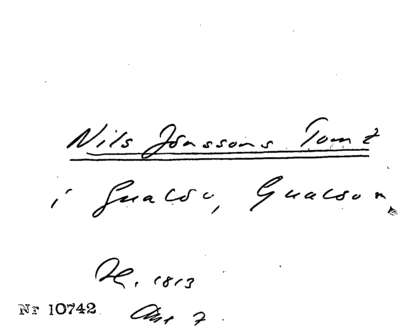 Nils Jönssons Tomt
i Gualöv, Gualöv
1813
Nr 10742